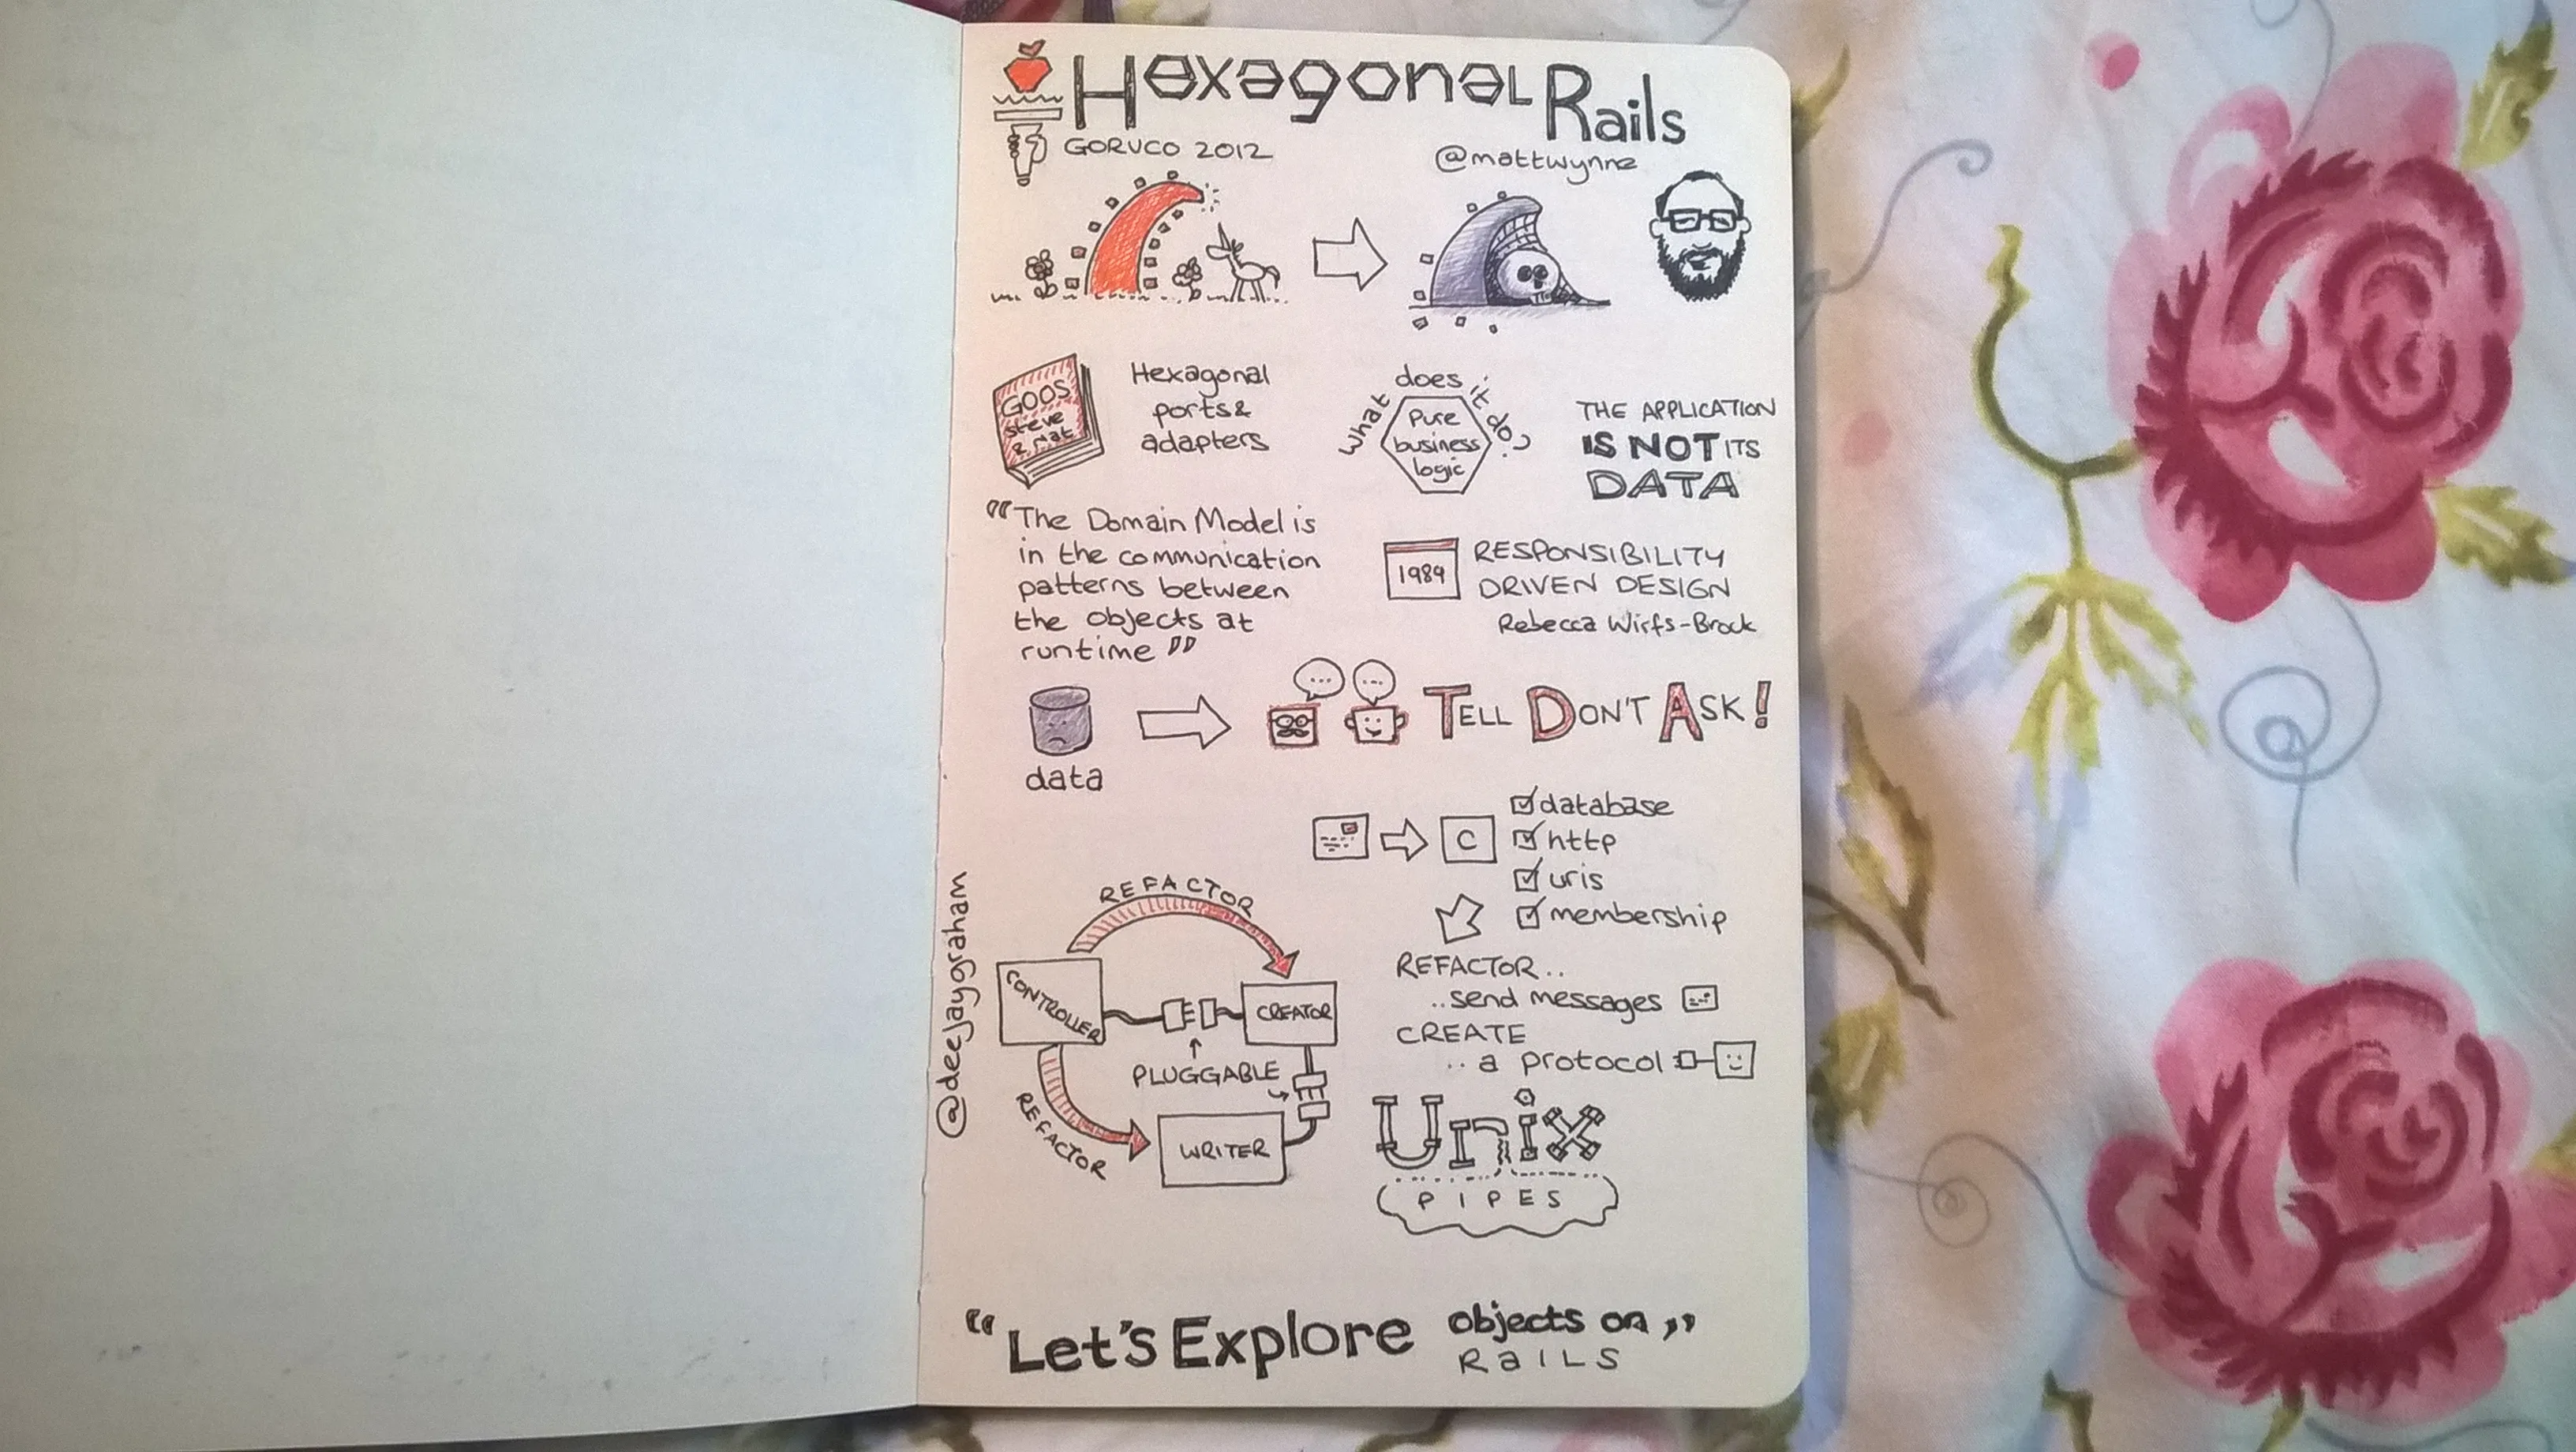 Hexagonal Rails
GORUCO 2012
@mattwynne
GOOS
steve
& nat
Hexagonal
ports &
adapters
What does it do?
Pure
business
logic
THE APPLICATION
IS NOT ITS
DATA
"The Domain Model is
in the communication
patterns between
the objects at
runtime"
1989
RESPONSIBILITY
DRIVEN DESIGN
Rebecca Wirfs-Brock
...
...
TELL DON'T ASK!
data
C
database
http
uris
membership
REFACTOR..
..send messages
CREATE
..a protocol
REFACTOR
CONTROLLER
CREATOR
PLUGGABLE
REFACTOR
WRITER
Unix
PIPES
@deejaygraham
"Let's Explore objects on"
RaILS